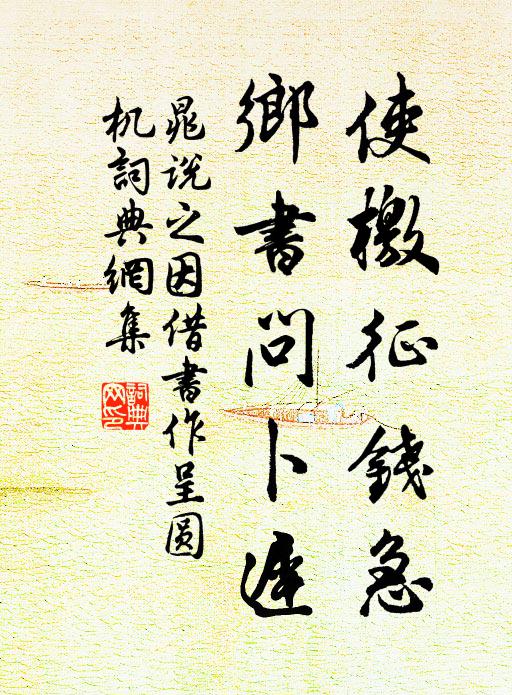 使檄征錢急
鄉書問卜遲
晁說之因借書作呈圆
机詞典網集
詞典
网印